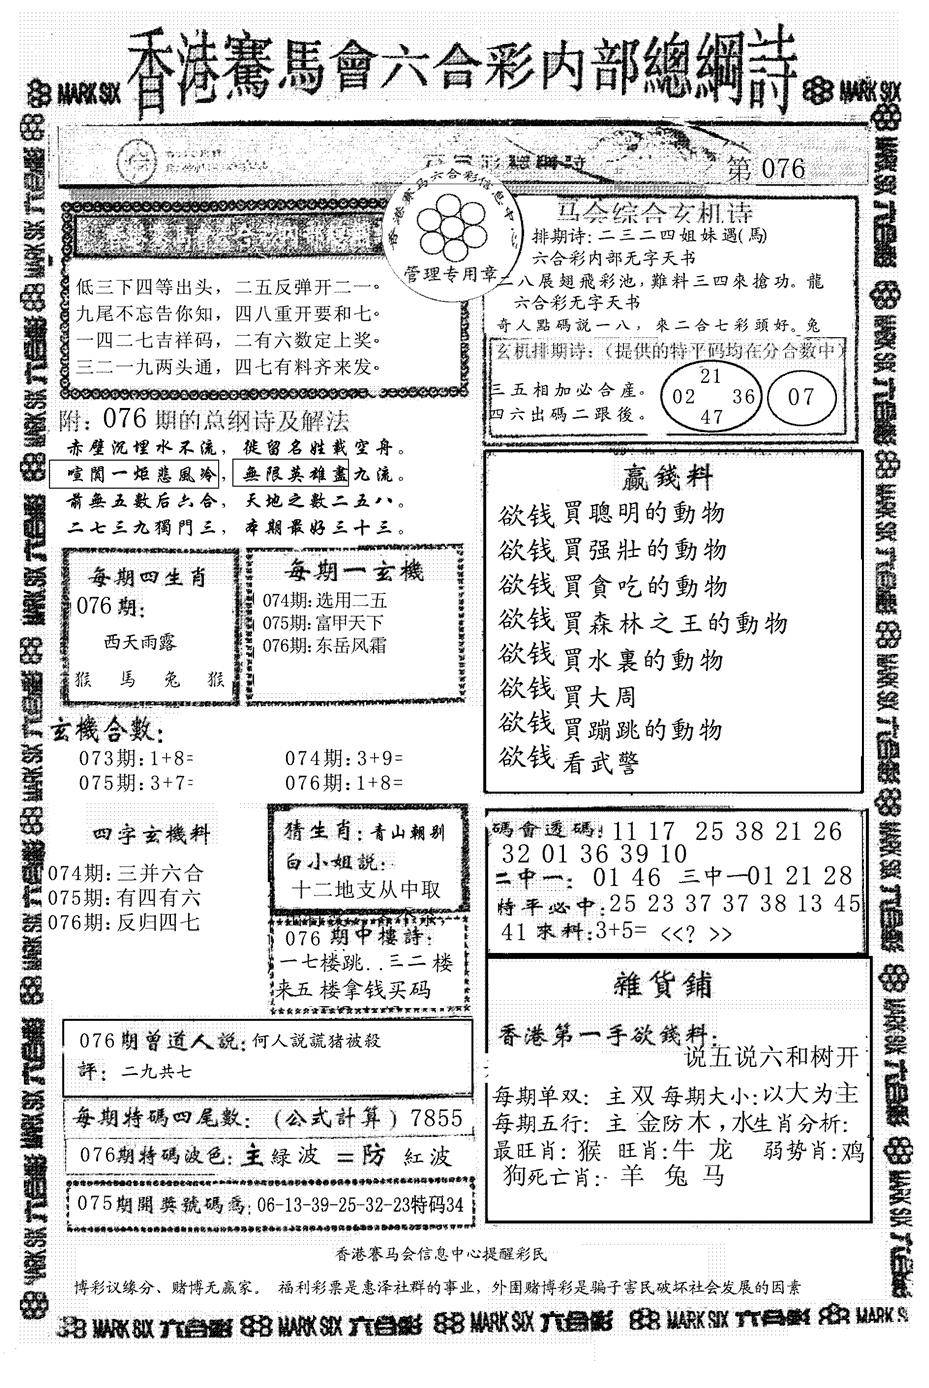 香港賽馬會六合彩内部總綱詩
MARK SIX
MARK SIX
第 076
香港赛马六合彩信息中心
管理专用章
低三下四等出头，二五反弹开二一。
九尾不忘告你知，四八重开要和七。
一四二七吉祥码，二有六数定上奖。
三二一九两头通，四七有料齐来发。
马会综合玄机诗
排期诗:二三二四姐妹遇(馬)
六合彩内部无字天书
二八展翅飛彩池,難料三四來搶功。龍
六合彩无字天书
奇人點碼説一八，來二合七彩頭好。兔
玄机排期诗:（提供的特平码均在分合数中）
三五相加必合産。
四六出碼二跟後。
21
02 36
47
07
附: 076 期的总纲诗及解法
赤壁沉埋水不流，徙留名姓載空舟。
喧闐一炬悲風冷，無限英雄盡九流。
前無五數后六合，天地之數二五八。
二七三九獨門三，本期最好三十三。
每期四生肖
076期:
西天雨露
猴 馬 兔 猴
每期一玄機
074期:选用二五
075期:富甲天下
076期:东岳风霜
贏錢料
欲钱買聰明的動物
欲钱買强壯的動物
欲钱買貪吃的動物
欲钱買森林之王的動物
欲钱買水裏的動物
欲钱買大周
欲钱買蹦跳的動物
欲钱看武警
玄機合數:
073期:1+8= 074期:3+9=
075期:3+7= 076期:1+8=
四字玄機料
074期:三并六合
075期:有四有六
076期:反归四七
猜生肖:青山朝别
白小姐説:
十二地支从中取
076 期中樓詩:
一七楼跳..三二楼
来五楼拿钱买码
碼會透碼: 11 17 25 38 21 26
32 01 36 39 10
二中一: 01 46 三中一01 21 28
特平必中:25 23 37 37 38 13 45
41 來料:3+5= <<? >>
雜貨鋪
香港第一手欲錢料:
说五说六和树开
每期单双: 主双 每期大小:以大为主
每期五行: 主 金防木，水生肖分析:
最旺肖: 猴 旺肖:牛 龙 弱势肖:鸡
狗死亡肖: 羊 兔 马
076期曾道人説:何人説謊猪被殺
評: 二九共七
每期特碼四尾數: (公式計算) 7855
076期特碼波色:主緑波 =防 紅波
075期開獎號碼爲:06-13-39-25-32-23特码34
香港赛马会信息中心提醒彩民
博彩议缘分、赌博无赢家。 福利彩票是惠泽社群的事业，外围赌博彩是骗子害民破坏社会发展的因素
MARK SIX 六合彩 MARK SIX 六合彩 MARK SIX 六合彩 MARK SIX 六合彩 MARK SIX